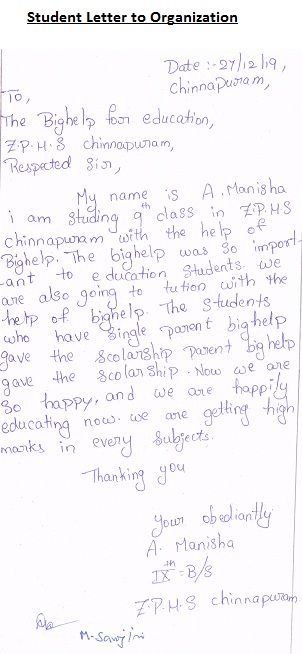 Student Letter to Organization
Date :- 27/12/19,
Chinnapuram,
To,
The Bighelp foor education,
Z.P.H.S chinnapuram,
Respected Sir,
My name is A. Manisha
i am studing 9th class in Z.P.H.S
chinnapuram with the help of
Bighelp. The bighelp was so import-
-ant to education Students. we
are also going to tution with the
help of bighelp. The Students
who have single parent bighelp
gave the scolarship parent bighelp
gave the scolarship. Now we are
so happy, and we are happily
educating now. we are getting high
marks in every Subjects.
Thanking you
your obediantly
A. Manisha
IXth = B/S
Z.P.H.S chinnapuram
M. Saroj ini